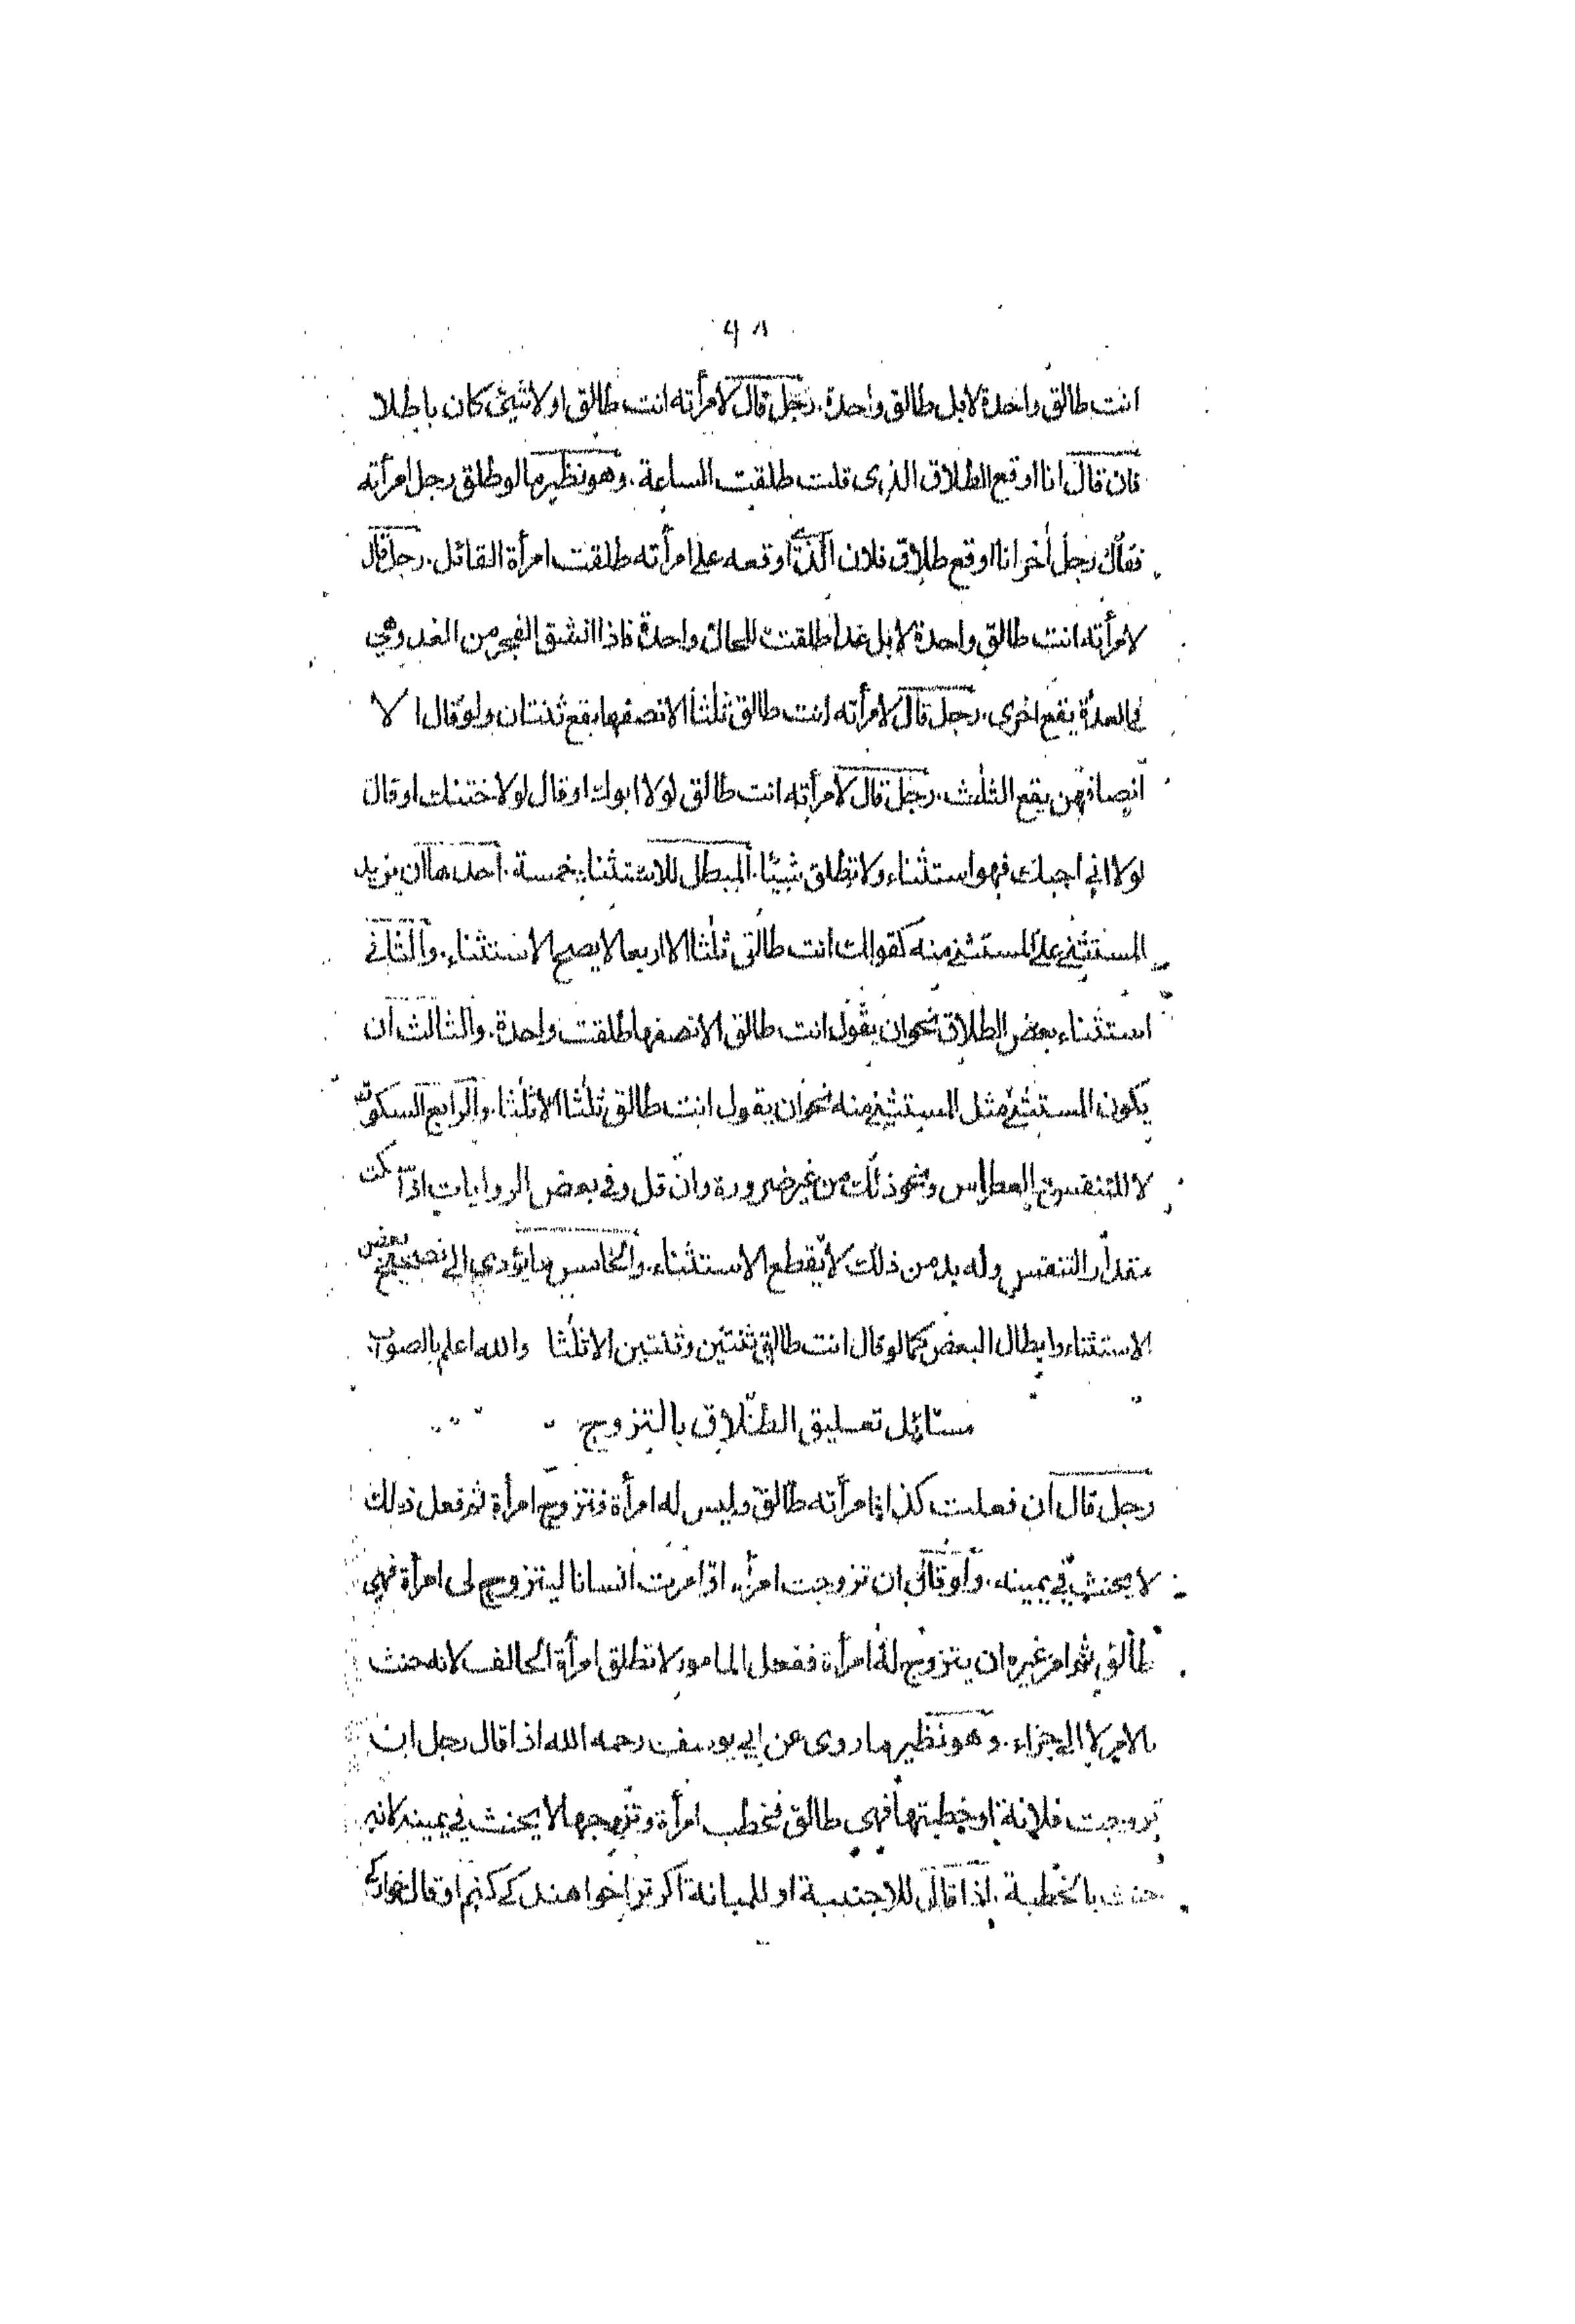 ٩٨
انت طالق واحدة لا بل طالق واحدة. رجل قال لامرأته انت طالق اولا شيئ كان باطلا
فان قال انا اوقع الطلاق الذى قلت طلقت الساعة. وهو نظير ما لو طلق رجل امرأته
فقال رجل أخر انا اوقع طلاق فلان الذى اوقعه على امرأته طلقت امرأة القائل. رجل قال
لامرأته انت طالق واحدة لا بل غدا طلقت للحال واحدة فاذا انشق الفجر من الغد وهى
فى العدة يقع اخرى. رجل قال لامرأته انت طالق ثلثا الا نصفها يقع ثنتان ولو قال ا لا
انصافهن يقع الثلث. رجل قال لامرأته انت طالق لولا ابوك او قال لولا ختنك او قال
لولا انى احبك فهو استثناء ولا تطلق شيئا. المبطل للاستثناء خمسة. احدها ان يزيد
المستثنى على المستثنى منه كقولك انت طالق ثلثا الا اربعا لا يصح الاستثناء. والثانى
استثناء بعض الطلاق نحو ان يقول انت طالق الا نصفها طلقت واحدة. والثالث ان
يكون المستثنى مثل المستثنى منه نحو ان يقول انت طالق ثلثا الا ثلثا. والرابع السكوت
لا للتنفس والعطاس ونحو ذلك من غير ضرورة وان قل وفى بعض الروايات اذا سكت
مقدار التنفس وله بد من ذلك لا يقطع الاستثناء. والخامس ما يؤدى الى تصحيح بعض
الاستثناء وابطال البعض كما لو قال انت طالق ثنتين وثنتين الا ثلثا والله اعلم بالصواب
مسائل تعليق الطلاق بالتزوج
رجل قال ان فعلت كذا فامرأته طالق وليس له امرأة فتزوج امرأة ثم فعل ذلك
لا يحنث فى يمينه. ولو قال ان تزوجت امرأة او امرت انسانا ليتزوج لى امرأة فهى
طالق ثم امر غيره ان يتزوج له امرأة ففعل المامور لا تطلق امرأة الحالف لانه حنث
بالامر لا الى جزاء. وهو نظير ما روى عن ابى يوسف رحمه الله اذا قال رجل ان
تزوجت فلانة او خطبتها فهى طالق فخطب امرأة وتزوجها لا يحنث فى يمينه لانه
حنث بالخطبة. اذا قال للاجنبية او للمبانة اكر ترا خواهندكى كنم او قال